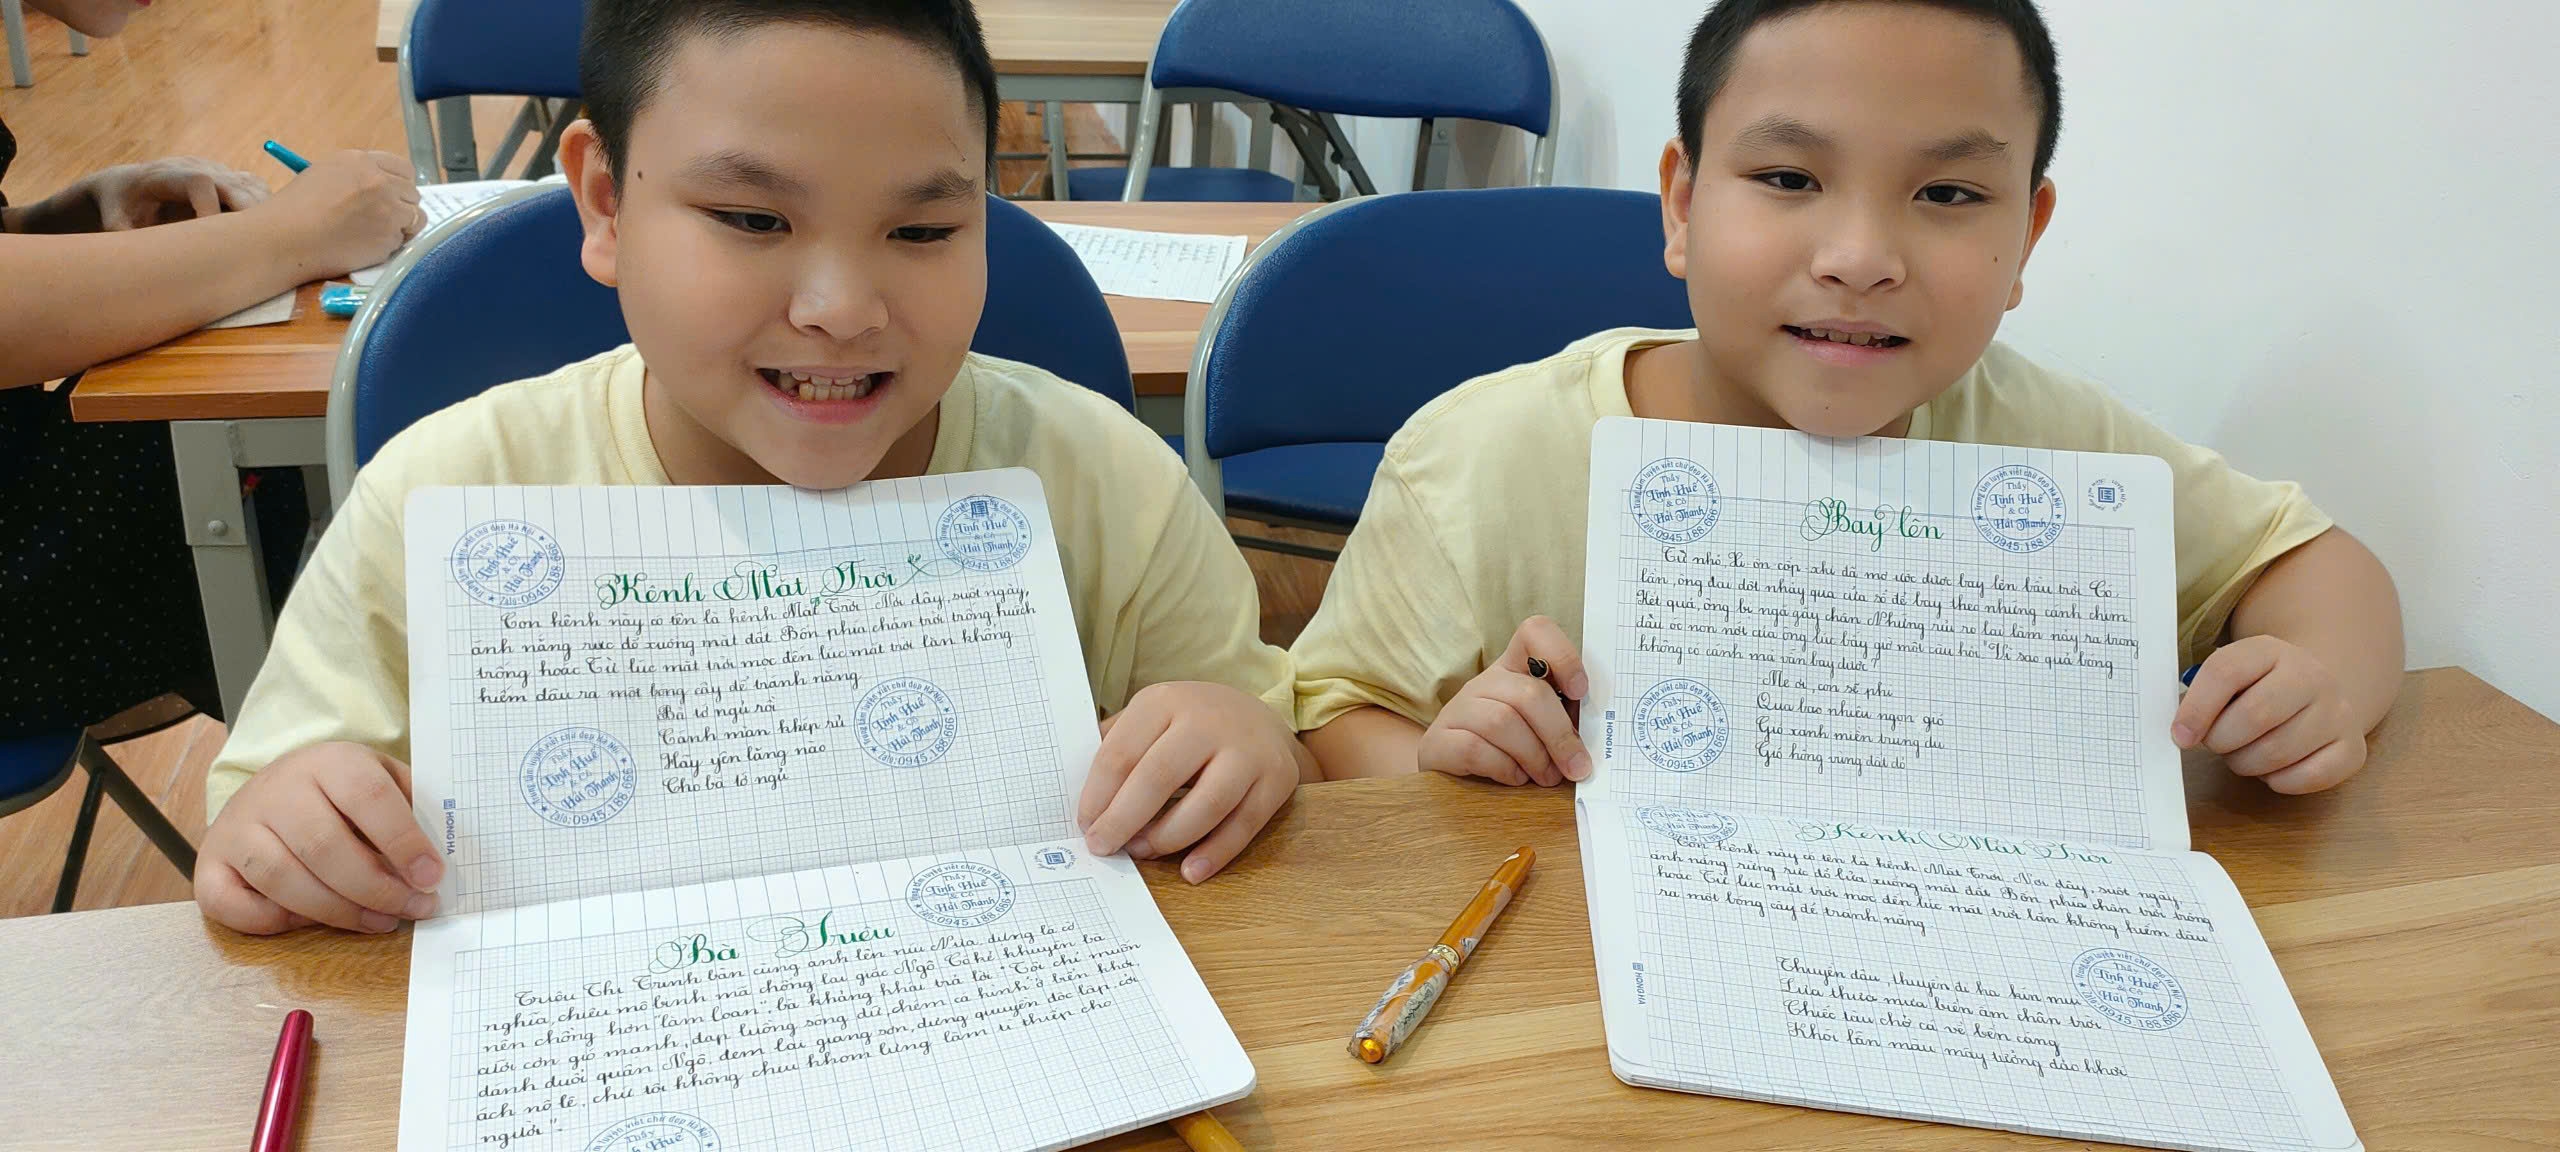 Kênh Mặt Trời
Con kênh này có tên là kênh Mặt Trời. Nơi đây, suốt ngày,
ánh nắng rực đổ xuống mặt đất. Bốn phía chân trời trống huếch
trống hoác. Từ lúc mặt trời mọc đến lúc mặt trời lặn không
hiếm đâu ra một bóng cây để tránh nắng.
Bà tớ ngủ rồi
Cánh màn khép rủ
Hãy yên lặng nao
Cho bà tớ ngủ
HONG HA
Bà Triệu
Triệu Thị Trinh bàn cùng anh lên núi Nưa dựng lá cờ
nghĩa, chiêu mộ binh mã chống lại giặc Ngô. Có kẻ khuyên bà
nên chồng hơn "làm loạn", bà khảng khái trả lời "Tôi chỉ muốn
cưỡi cơn gió mạnh, đạp luồng sóng dữ, chém cá kình ở biển khơi,
đánh đuổi quân Ngô, đem lại giang sơn, dựng quyền độc lập, cởi
ách nô lệ, chứ tôi không chịu khom lưng làm tì thiếp cho
người".
Trung tâm luyện viết chữ đẹp Hà Nội
Thầy
Tình Huế
& Cô
Hải Thanh
Zalo: 0945.188.666
Bay lên
Từ nhỏ, Xi-ôn-cốp-xki đã mơ ước được bay lên bầu trời. Có
lần, ông dại dột nhảy qua cửa sổ để bay theo những cánh chim.
Kết quả, ông bị ngã gãy chân. Nhưng rủi ro lại làm nảy ra trong
đầu óc non nớt của ông lúc bấy giờ một câu hỏi: "Vì sao quả bóng
không có cánh mà vẫn bay được?
Mẹ ơi, con sẽ phi
Qua bao nhiêu ngọn gió
Gió xanh miền trung du
Gió hồng vùng đất đỏ
HONG HA
Kênh Mặt Trời
Con kênh này có tên là kênh Mặt Trời. Nơi đây, suốt ngày
ánh nắng rừng rực đổ lửa xuống mặt đất. Bốn phía chân trời trống
hoác. Từ lúc mặt trời mọc đến lúc mặt trời lặn không hiếm đâu
ra một bóng cây để tránh nắng.
Thuyền đâu, thuyền đi
Lưa thưa mưa biển ấm chân trời
Chiếc tàu chở cá về bến cảng
Khói lẫn màu mây tưởng đảo khơi
HONG HA